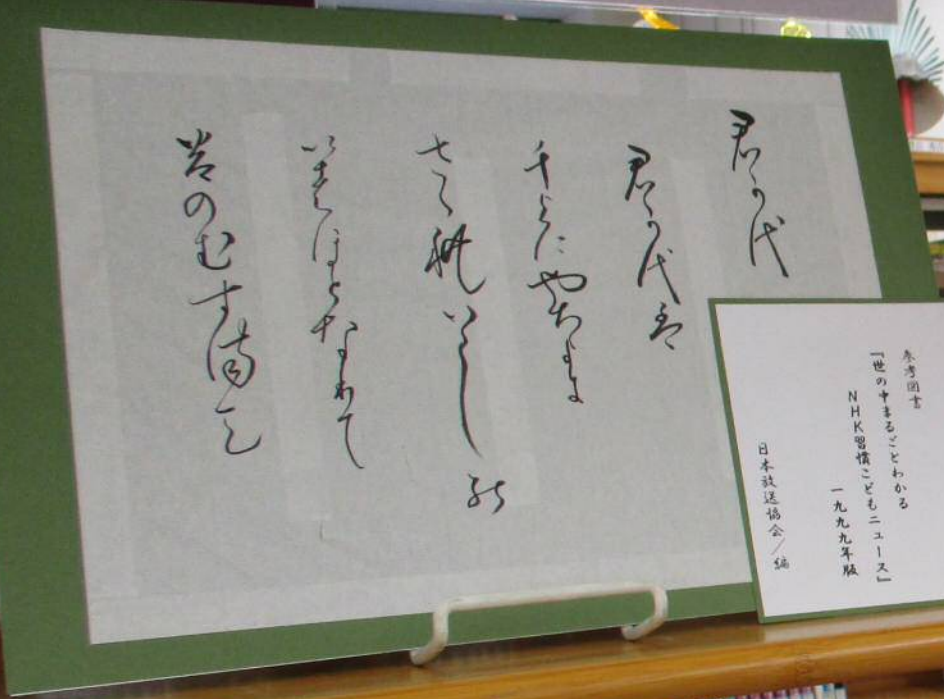 君か代
君か代は
千よにやちよに
さゝれいしの
いはほとなりて
苔のむすまて
参考図書
『世の中まるごとわかる
NHK習慣こどもニュース』
一九九九年版
日本放送協会/編